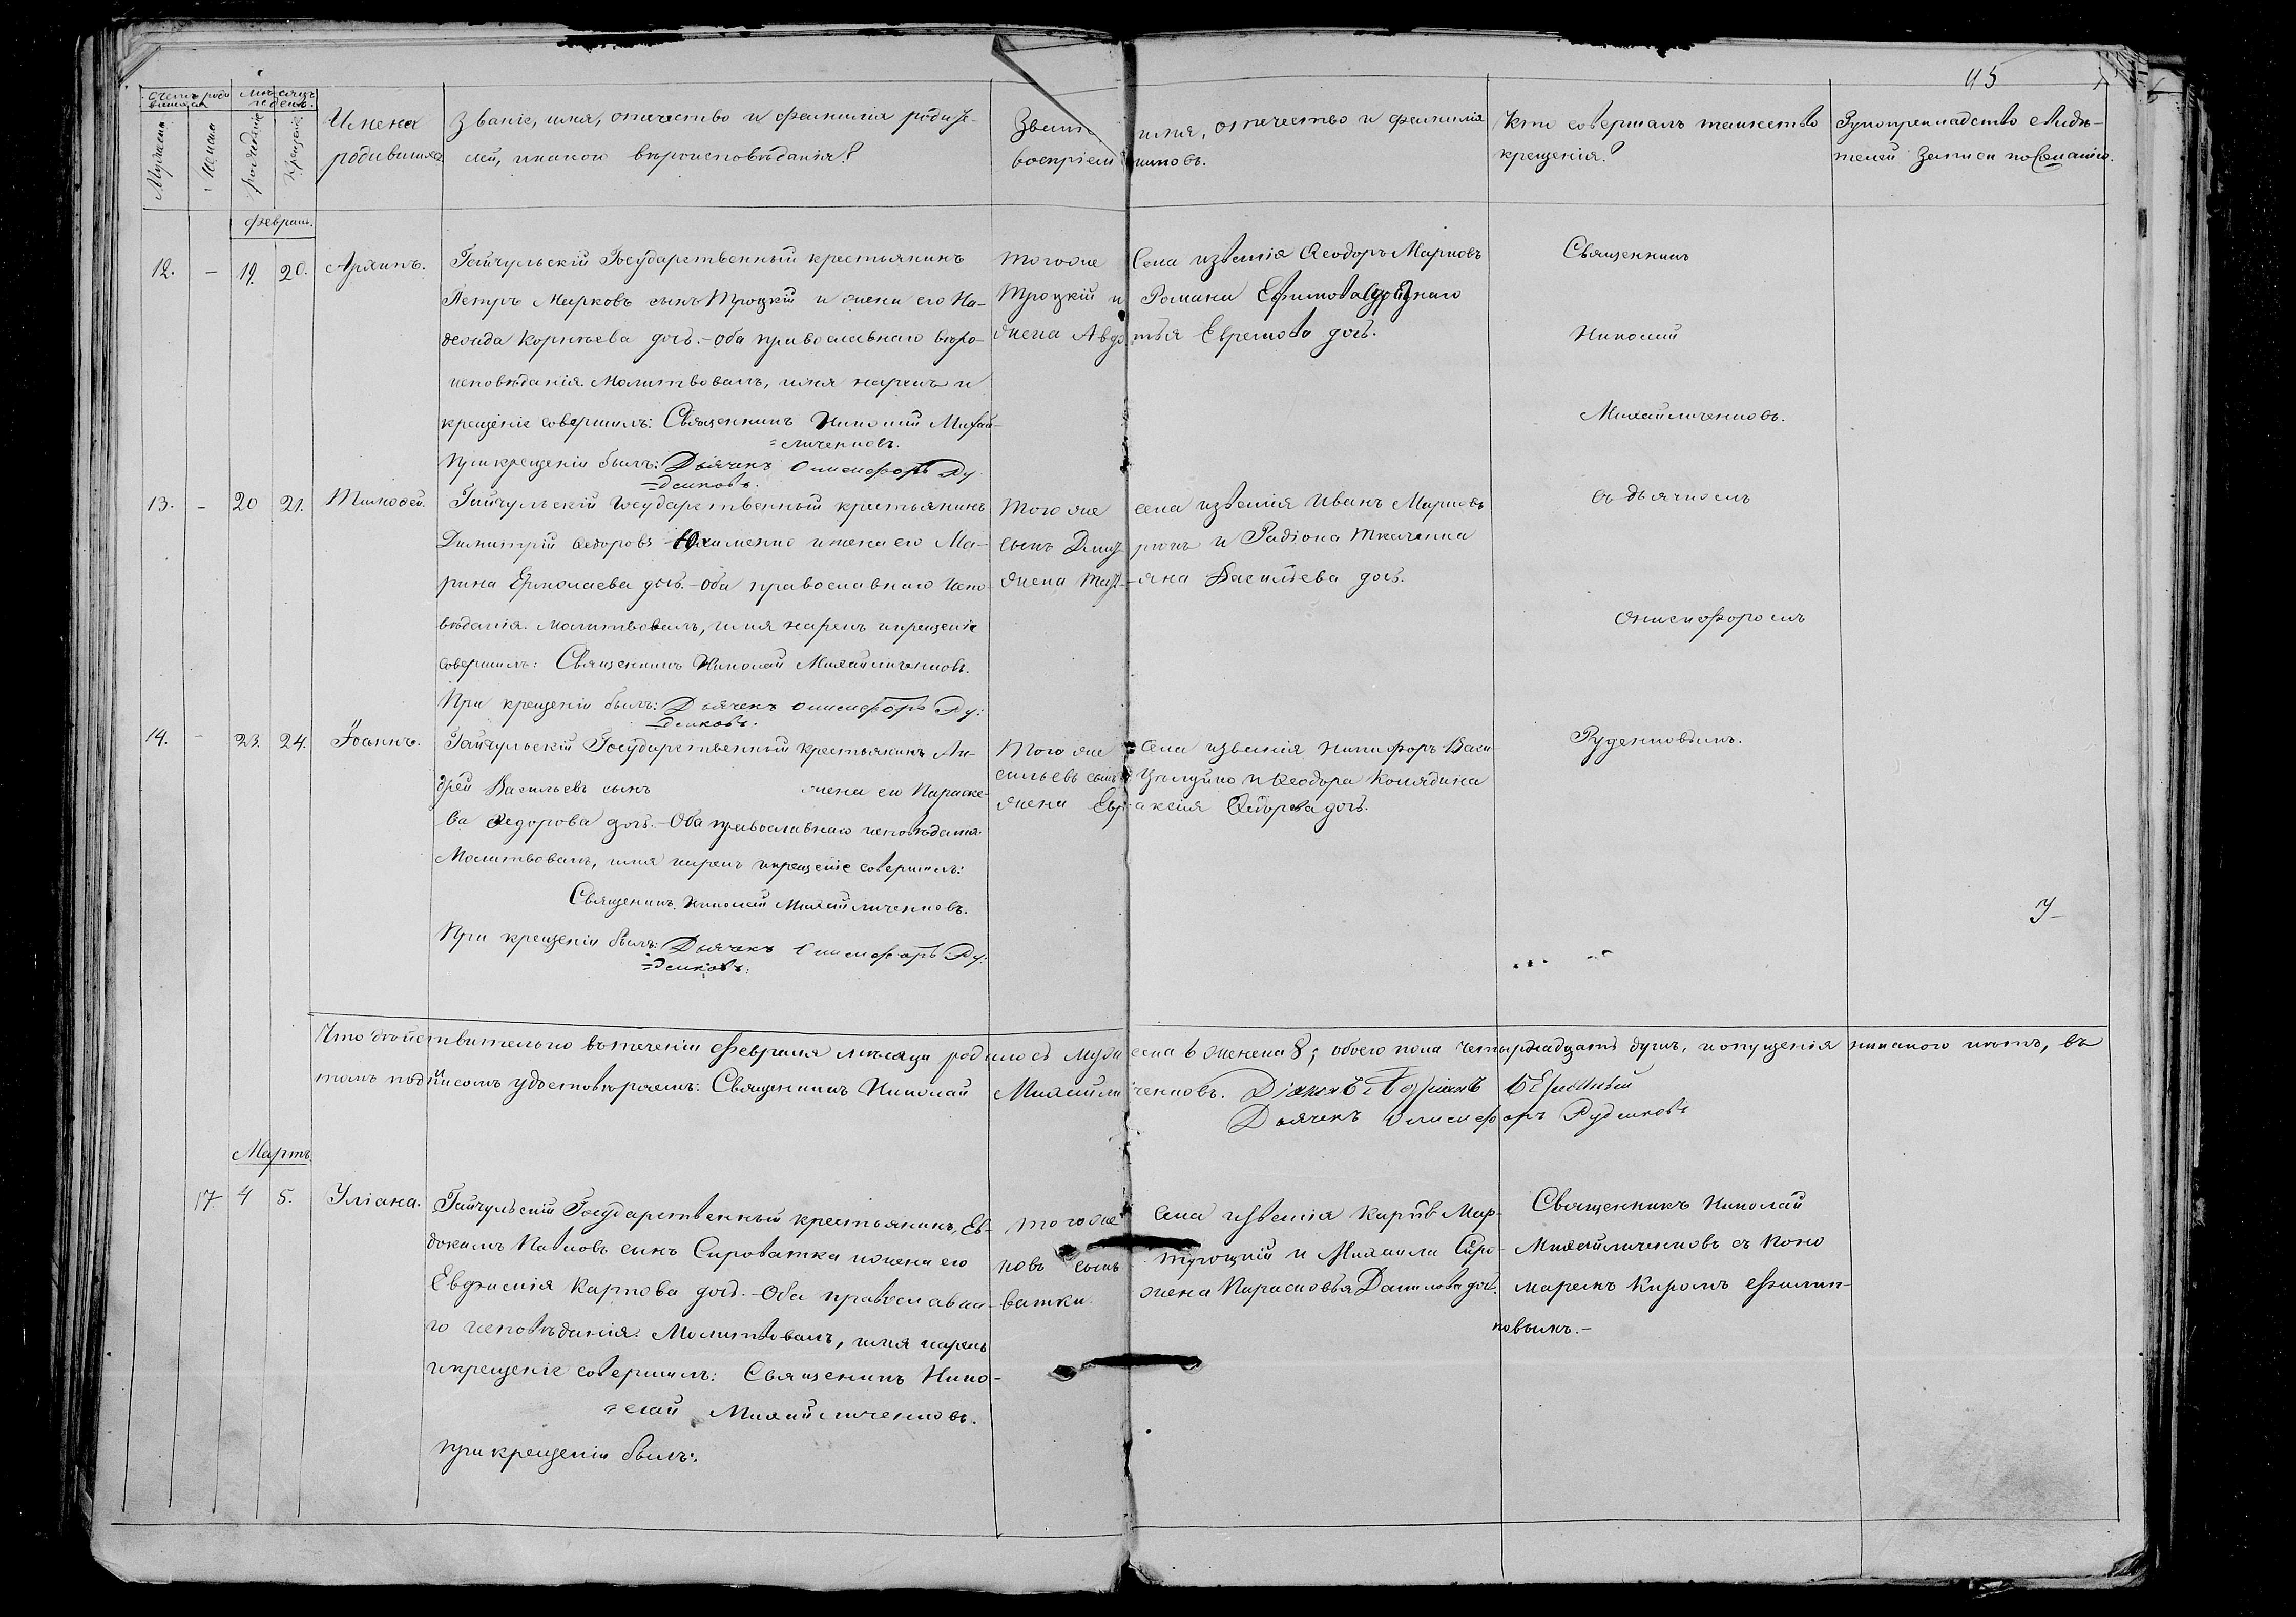 45
Счетъ роди
вшихся
Мѣсяцъ
и день.
Мужеска
Женска
рожденія
крещенія
Имена
родившихся
Званіе, имя, отчество и фамилія родите-
лей, и какого вѣроисповѣданія?
Званіе имя, отчество и фамилія
воспріемниковъ.
Кто совершалъ таинство
крещенія?
Рукоприкладство свидѣ-
телей записи по желанію.
Февраль.
12. – 19. 20. Архипъ.
Гайчульскій Государственный крестьянинъ
Петръ Марковъ сынъ Троцкій и жена его На-
дежда Корнѣева дочь. – Оба православнаго вѣро-
исповѣданія. Молитвовалъ, имя нарекъ и
крещеніе совершилъ: Священникъ Николай Михай-
=личенковъ.
При крещеніи былъ: Дьячекъ Онисифоръ Ру
=денковъ.
Того же Села Феодоръ Марковъ
Троцкій и Романа
жена Авдотья Ефремова дочь.
Священникъ
Николай
Михайличенковъ.
13. – 20 21. Тимофей.
Гайчульскій Государственный крестьянинъ
Димитрій Федоровъ Юхименко и жена его Ма-
рина Ермолаева дочь. – Оба православнаго испо-
вѣданія. Молитвовалъ, имя нарекъ и крещеніе
совершилъ: Священникъ Николай Михайличенковъ.
При крещеніи былъ: Дьячекъ Онисифоръ Ру:
=денковъ.
Того же села Иванъ Марковъ
сынъ и Радіона Ткаченка
жена Татьяна Васильева дочь.
съ дьячкомъ
Онисифоромъ
14. – 23. 24. Іоаннъ.
Гайчульскій Государственный крестьянинъ Ан-
дрей Васильевъ сынъ жена его Параске-
ва Федорова дочь. – Оба православнаго исповѣданія.
Молитвовалъ, имя нарекъ и крещеніе совершилъ:
Священникъ Николай Михайличенковъ.
При крещеніи былъ: Дьячекъ Онисифоръ Ру:
=денковъ:
Того же Села Никифоръ Васи-
сильевъ сынъ и Феодора Колядина
жена Евпраксія Федорова дочь.
Руденковымъ.
Что дѣйствительно въ теченіи Февраля мѣсяца родилось мужеска 6 женска 8; обоего пола четырнадцать душъ, и опущенія никакого нѣтъ, въ
томъ подписомъ удостовѣряемъ: Священникъ Николай Михайличенковъ.
Дьячекъ Онисифоръ Руденковъ
Мартъ
17 4 5. Уліана.
Гайчульскій Государственный крестьянинъ, Ев-
докимъ Павловъ сынъ Сироватка и жена его
Евфимія Карпова дочь. – Оба православна-
го исповѣданія. Молитвовалъ, имя нарекъ
и крещеніе совершилъ: Священникъ Нико-
=лай Михайличенковъ.
При крещеніи былъ:
Того же Села Мар-
ковъ сынъ Троцкій и Михаила Сиро-
ватки жена Парасковья Данилова дочь.
Священникъ Николай
Михайличенковъ съ Поно
маремъ Киромъ Филип-
повымъ. –